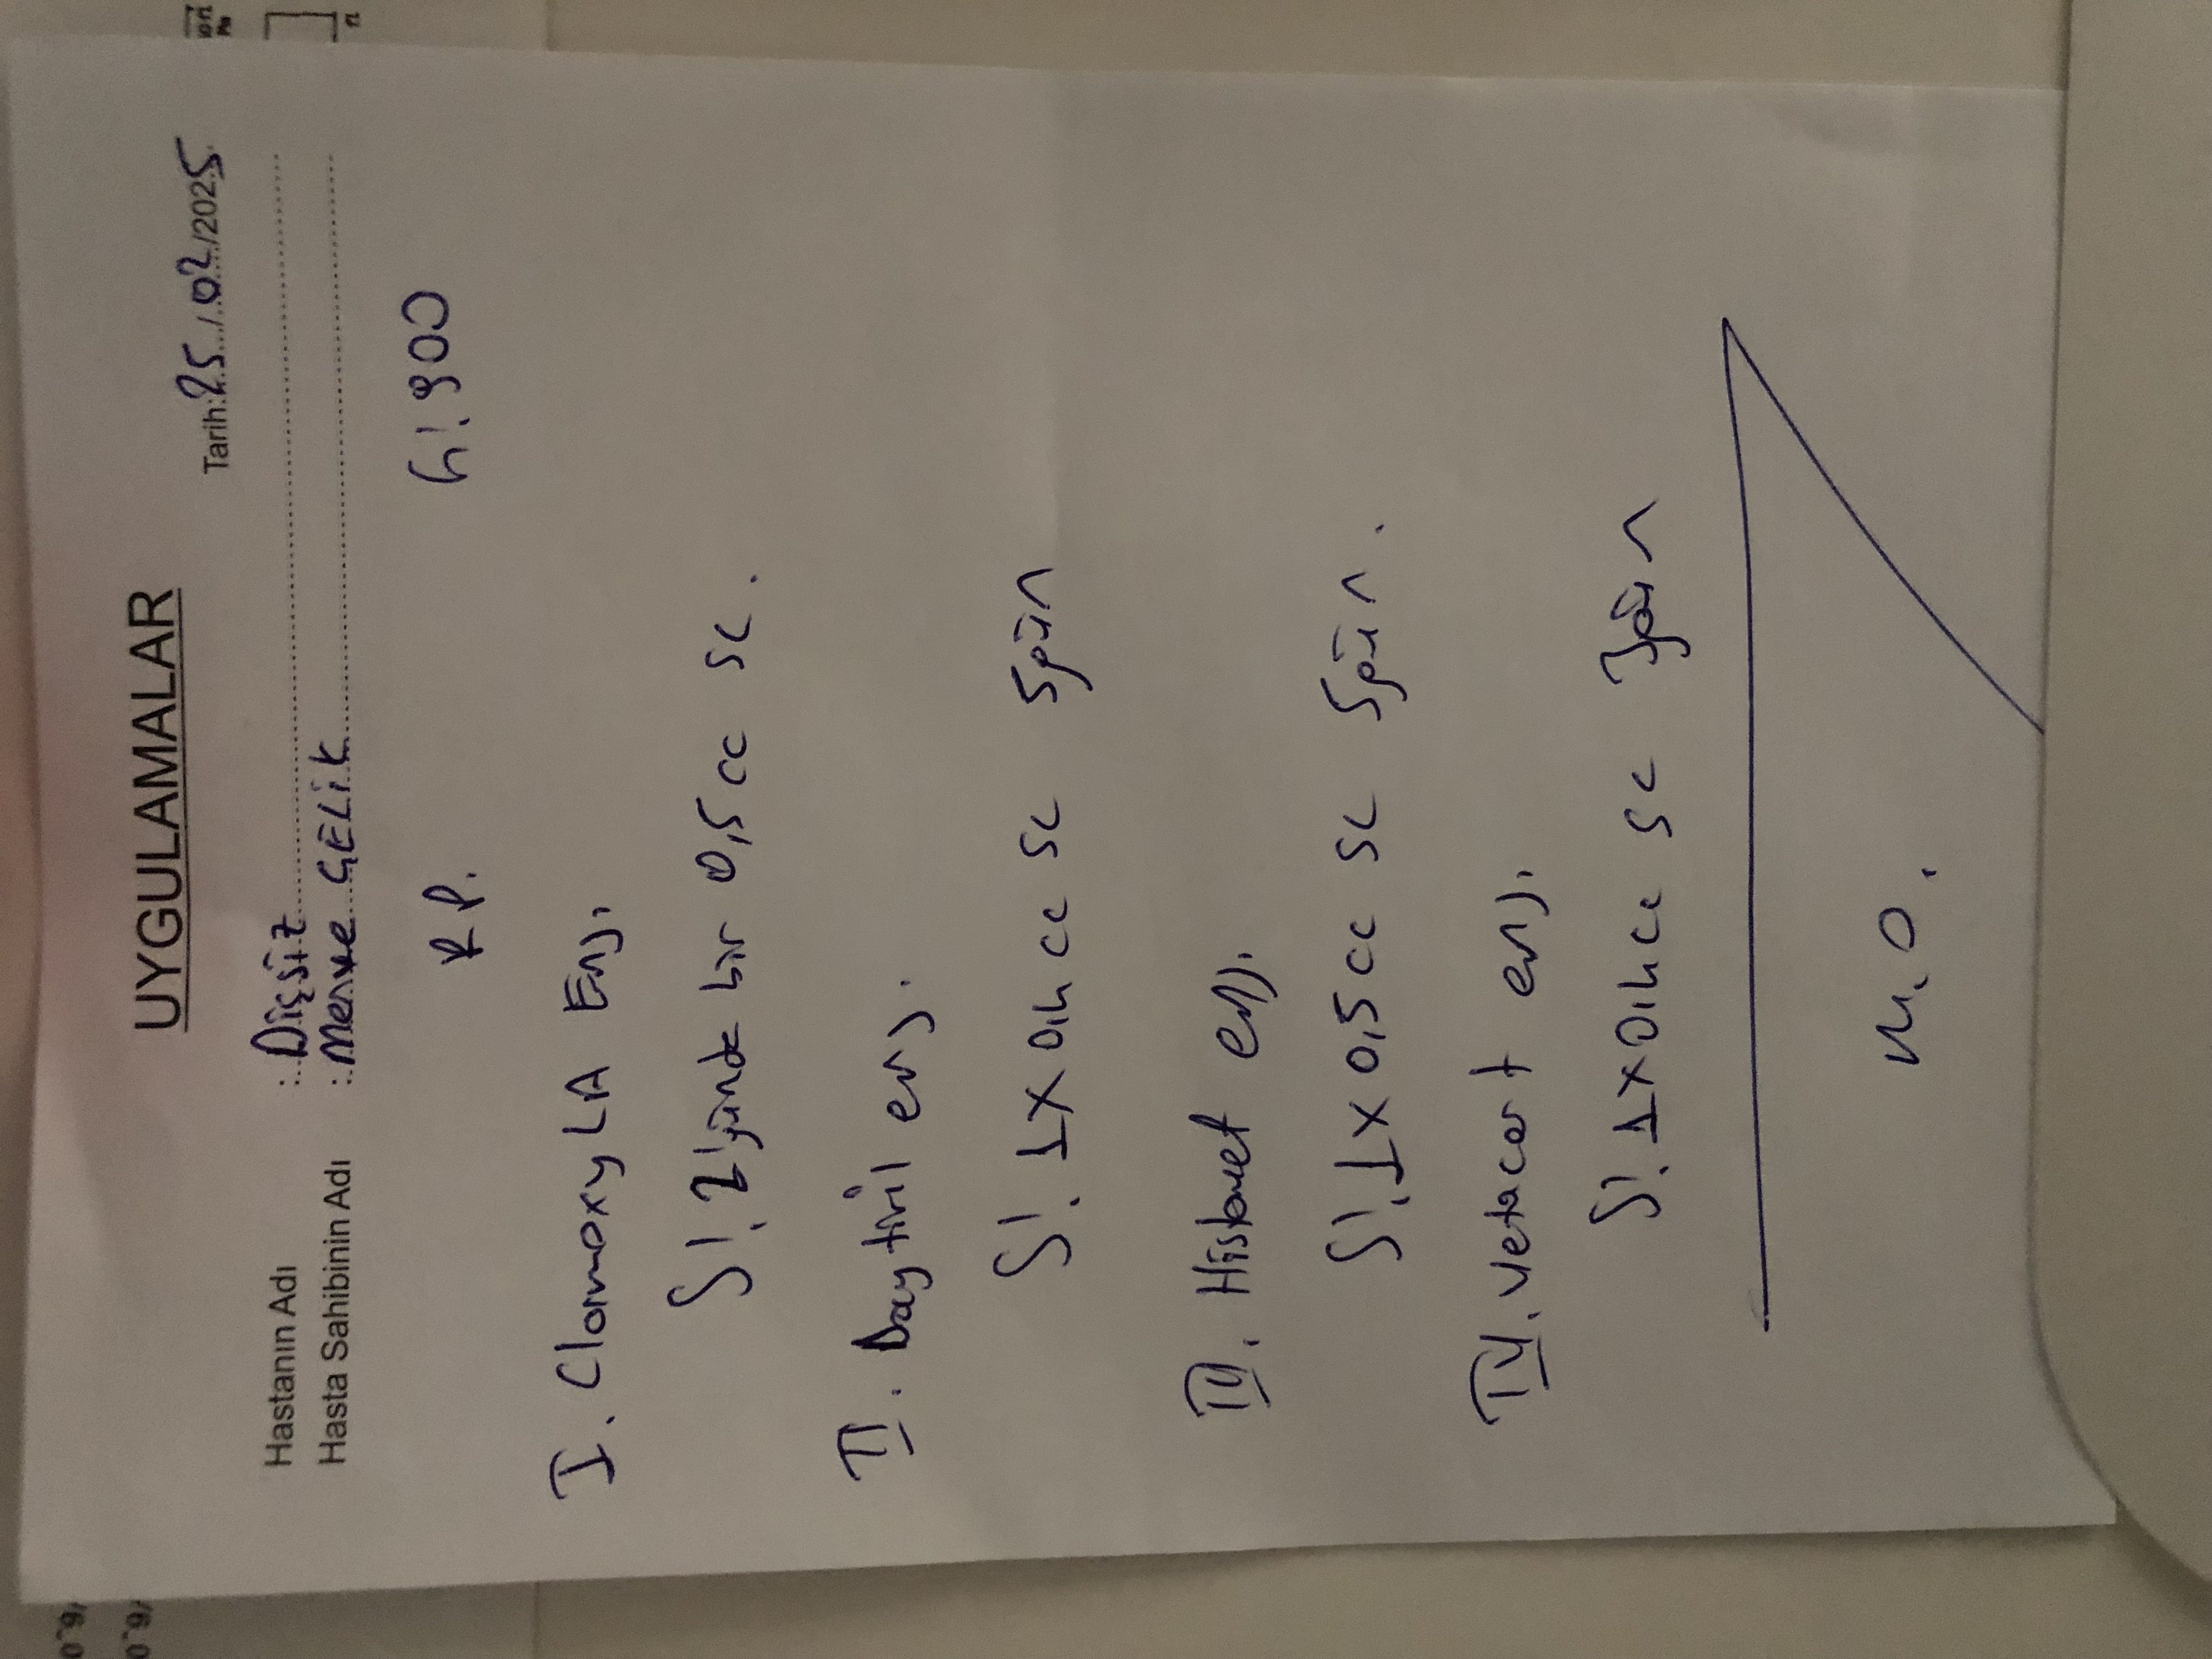 UYGULAMALAR
Tarih: 25/02/2025
Hastanın Adı : Dişsiz
Hasta Sahibinin Adı : Merve ÇELİK
RP.
I. Clamoxyl LA Enj.
S/. 2 günde bir 0,5 cc sc.
II. Baytril enj.
S/. 1x0,4 cc sc 5 gün
III. Histavet enj.
S/. 1x0,5 cc sc 5 gün.
IV. Vetacort enj.
S/. 1x0,4 cc sc 3 gün